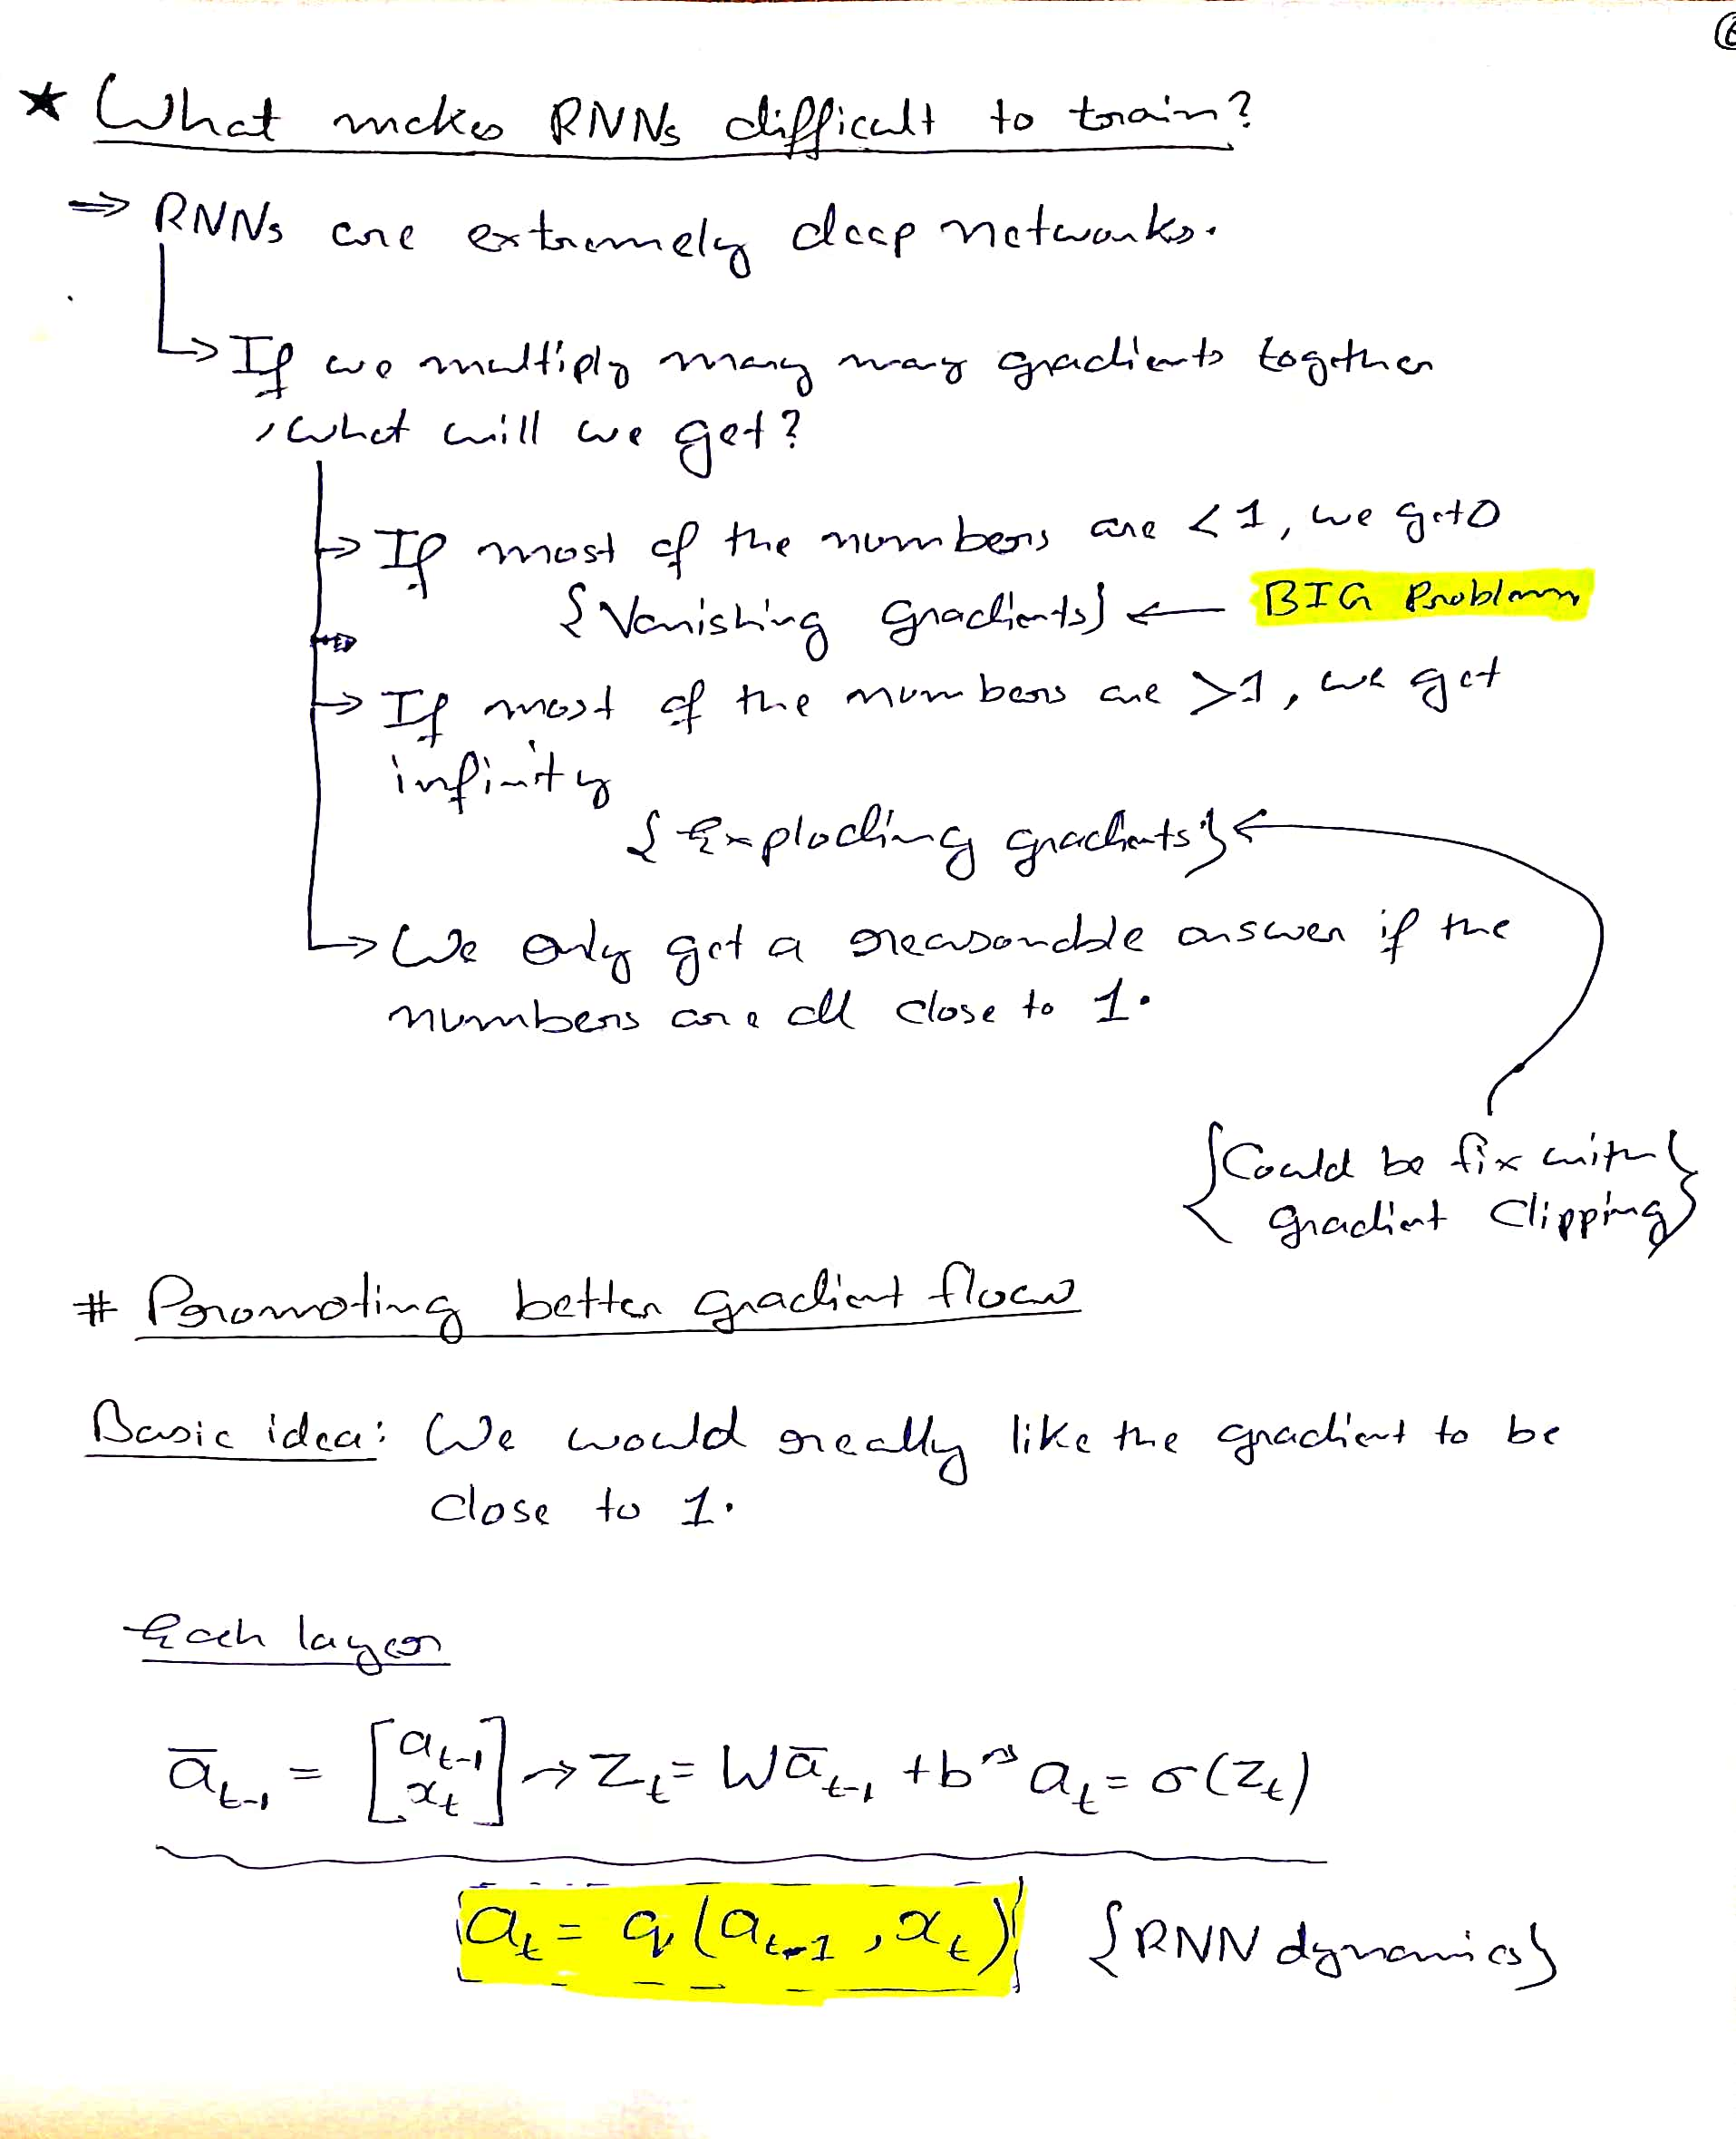 ★ What makes RNNs difficult to train?
⇒ RNNs are extremely deep networks.
↳ If we multiply many many gradients together
, what will we get?
→ If most of the numbers are < 1, we get 0
{Vanishing gradients} ← BIG Problem
→ If most of the numbers are >1, we get
infinity
{Exploding gradients} ←
↳ We only get a reasonable answer if the
numbers are all close to 1.
{Could be fix with
gradient clipping}
# Promoting better gradient flow
Basic idea: We would really like the gradient to be
close to 1.
Each layer
ā_{t-1} = [a_{t-1} x_t] → z_t = Wā_{t-1} + b → a_t = σ(z_t)
a_t = q(a_{t-1}, x_t) {RNN dynamics}